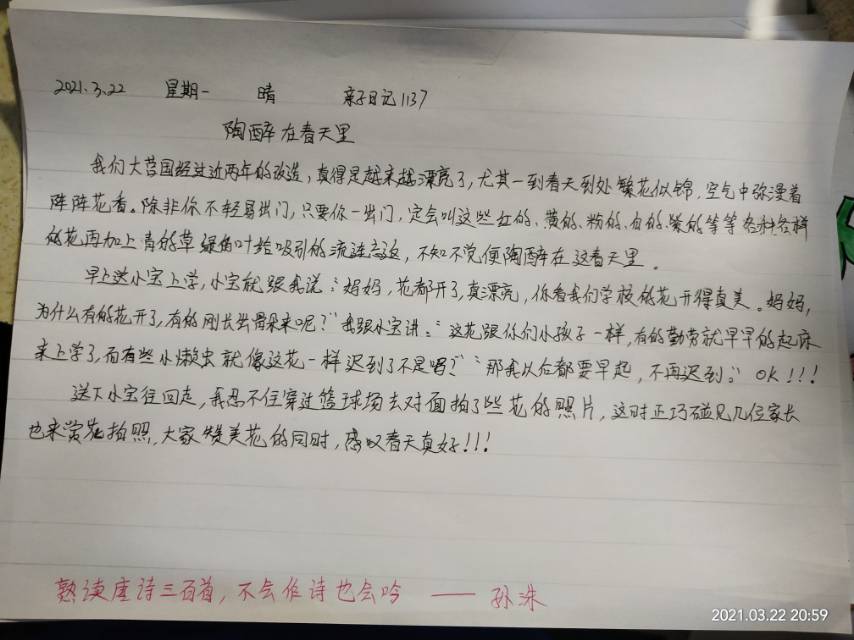 2021.3.22 星期一 晴 亲子日记1137
陶醉在春天里
我们大营国经过近两年的改造,真得是越来越漂亮了,尤其一到春天到处繁花似锦,空气中弥漫着
阵阵花香。除非你不轻易出门,只要你一出门,定会叫这些红的、黄的、粉的、白的、紫的等等各种各样
的花再加上青的草绿的叶给吸引的流连忘返,不知不觉便陶醉在这春天里。
早上送小宝上学,小宝就跟我说:"妈妈,花都开了,真漂亮,你看我们学校的花开得真美。妈妈,
为什么有的花开了,有的刚长出骨朵来呢?"我跟小宝讲:"这花跟你们小孩子一样,有的勤劳就早早的起床
来上学了,而有些小懒虫就像这花一样迟到了不是吗?""那我以后都要早起,不再迟到。"OK!!!
送下小宝往回走,我忍不住穿过篮球场去对面拍了些花的照片,这时正巧碰见几位家长
也来赏花拍照,大家赞美花的同时,感叹春天真好!!!
熟读唐诗三百首,不会作诗也会吟 —— 孙洙
2021.03.22 20:59